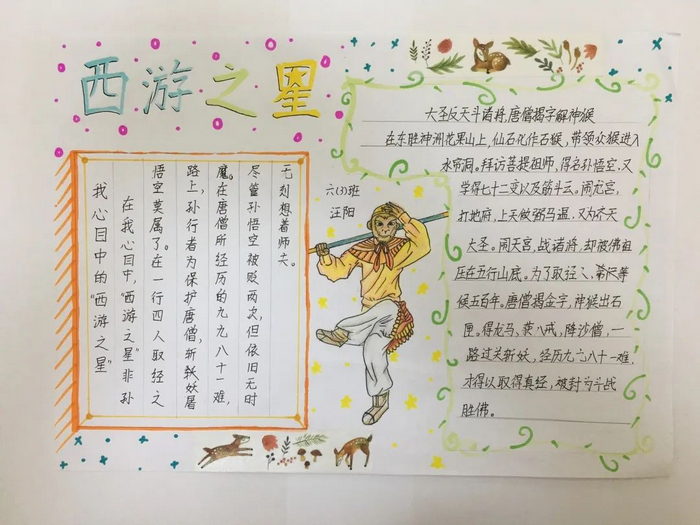 西游之星
我心目中的“西游之星”
在我心目中，“西游之星”非孙
悟空莫属了。在一行四人取经之
路上，孙行者为保护唐僧，斩妖屠
魔。在唐僧所经历的九九八十一难，
尽管孙悟空被贬两次，但依旧无时
无刻想着师夫。
六(3)班
汪阳
大圣反天斗诸将，唐僧揭字解神猴
在东胜神洲花果山上，仙石化作石猴，带领众猴进入
水帘洞。拜访菩提祖师，得名孙悟空，又
学得七十二变以及筋斗云。闹龙宫，
打地府，上天做弼马温，又为齐天
大圣。闹天宫，战诸将，却被佛祖
压在五行山底。为了取经，等
候五百年。唐僧揭金字，神猴出石
匣。得龙马，八戒，降沙僧，一
路过关斩妖，经历九九八十一难，
才得以取得真经，被封为斗战
胜佛。